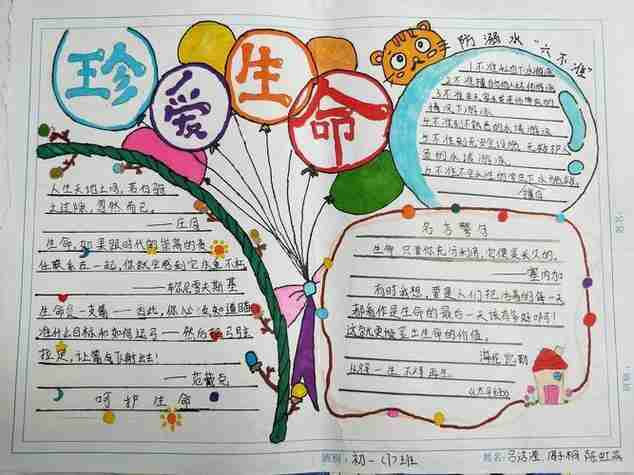 珍爱生命
防溺水"六不准"
1不准私自下水游泳
2不准擅自与他人结伴游泳
3不准在无家长或老师带领的
情况下游泳
4不准到不熟悉的水域游泳
5不准到无安全设施、无救护人
员的水域游泳
6不准不会水性的学生下水
人生天地之间，若白驹
之过隙，忽然而已。
——庄子
生命，如果跟时代的崇高的责
任联系在一起，你就会感到它永垂不朽
——车尔尼雪夫斯基
生命是一支箭——因此，你必须知道瞄
准什么目标和如何运弓——然后把弓弦
拉足，让箭飞射出去！
呵护生命
名言警句
生命，只要你充分利用，它便是长久的。
——塞内加
有时我想，要是人们把活着的每一天
都看作是生命的最后一天该有多好啊！
这就更能显出生命的价值。
海伦凯勒
一生不得再生
班级：初一（7）班
姓名：